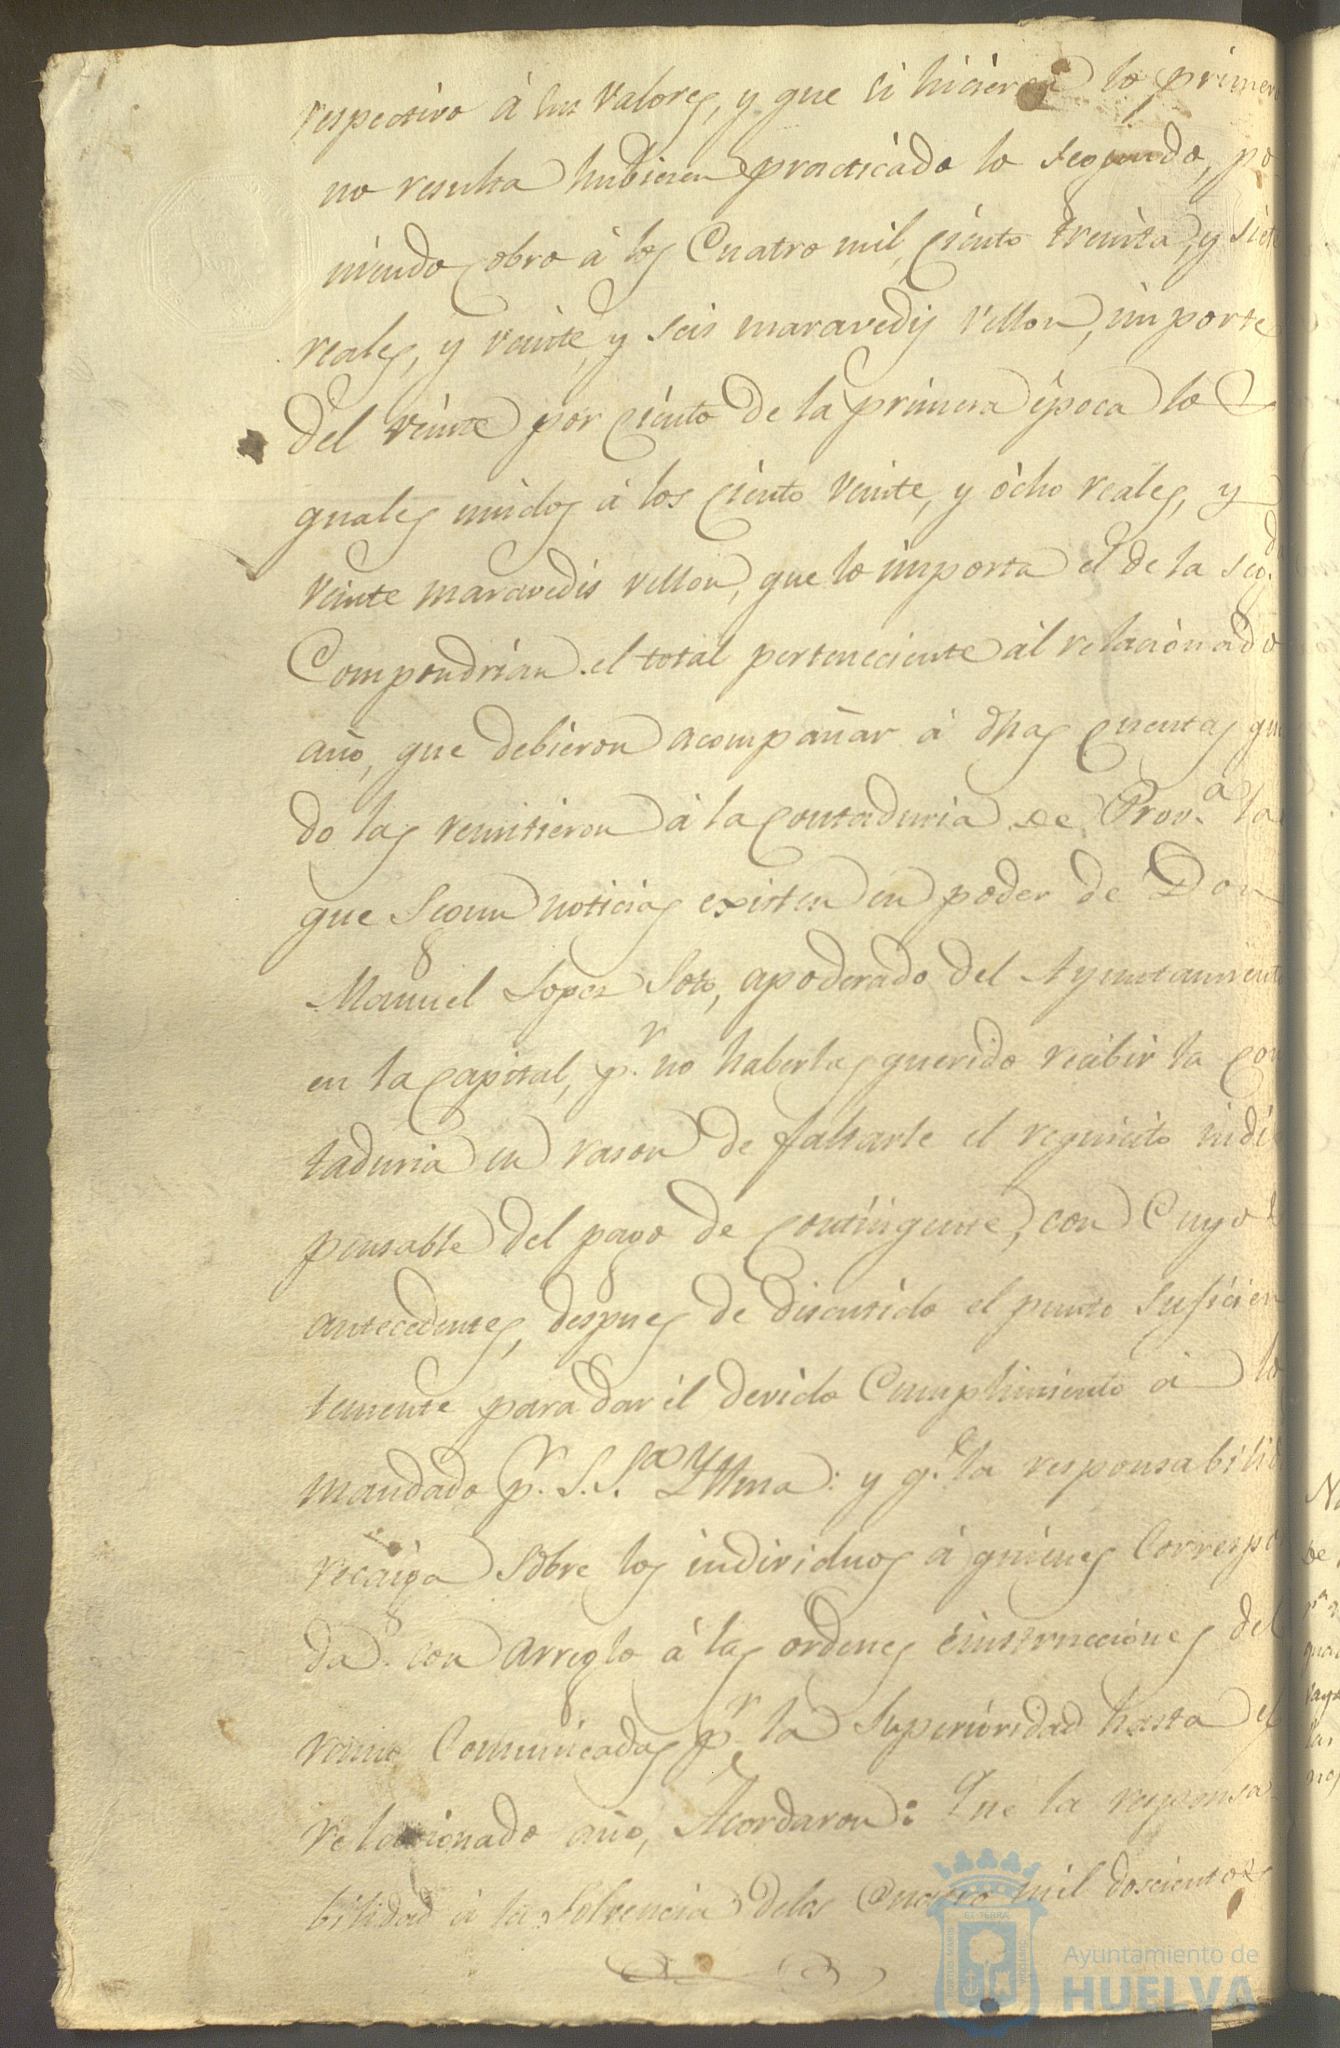 respectivo á sus valores, y que si hicieron lo primer
no resulta hubiesen practicado lo segundo, po
niendo cobro á los Cuatro mil, ciento treinta, y siete
reales, y veinte, y seis maravedis vellon, importe
del veinte por ciento de la primera época lo
quales unidos á los ciento veinte, y ocho reales, y
veinte maravedis vellon, que lo importa el de la seg.da
Compondrian el total perteneciente al relacionado
año, que debieron acompañar á dhas cuentas qua
do las remitieron á la Contaduria de Prov.a la
que segun noticias existen en poder de Don
Manuel Lopez Soto, apoderado del Ayuntamiento
en la capital, p.r no haberlas querido recibir la Con
taduria en rason de faltarle el requicito indis
pensable del pago de Contingente, con Cuyo
antecedentes, despues de discutido el punto suficien
temente para dar él devido Cumplimiento á lo
mandado p.r S. S.a Yllma: y q.e la responsabilid
recaiga sobre los individuos á quienes Correspo
da con arreglo á las ordenes é instrucciones del
ramo Comunicadas p.r la Superioridad hasta el
relacionado año, Acordaron: Que la responsa
bilidad á la Solvencia delos Cuatro mil doscientos
Ayuntamiento de
HUELVA